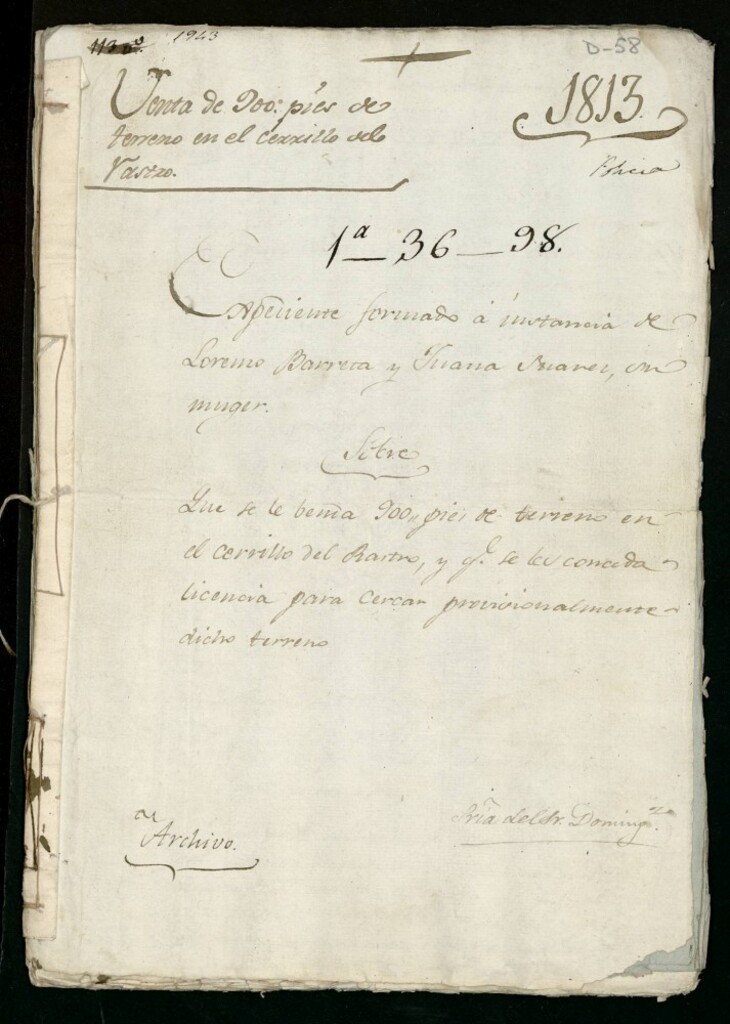 1943
D-58
Venta de 900. pies de
terreno en el cerrillo del
Rastro.
1813
Policia
1ª 36 98.
Expediente formado à instancia de
Lorenzo Barreta y Juana Suarez, su
muger.
Sobre
Que se le benda 900,, pies de terreno en
el cerrillo del Rastro, y q.e se les conceda
licencia para cercar provisionalmente
dicho terreno
Archivo.
Sría del Sr. Doming.z